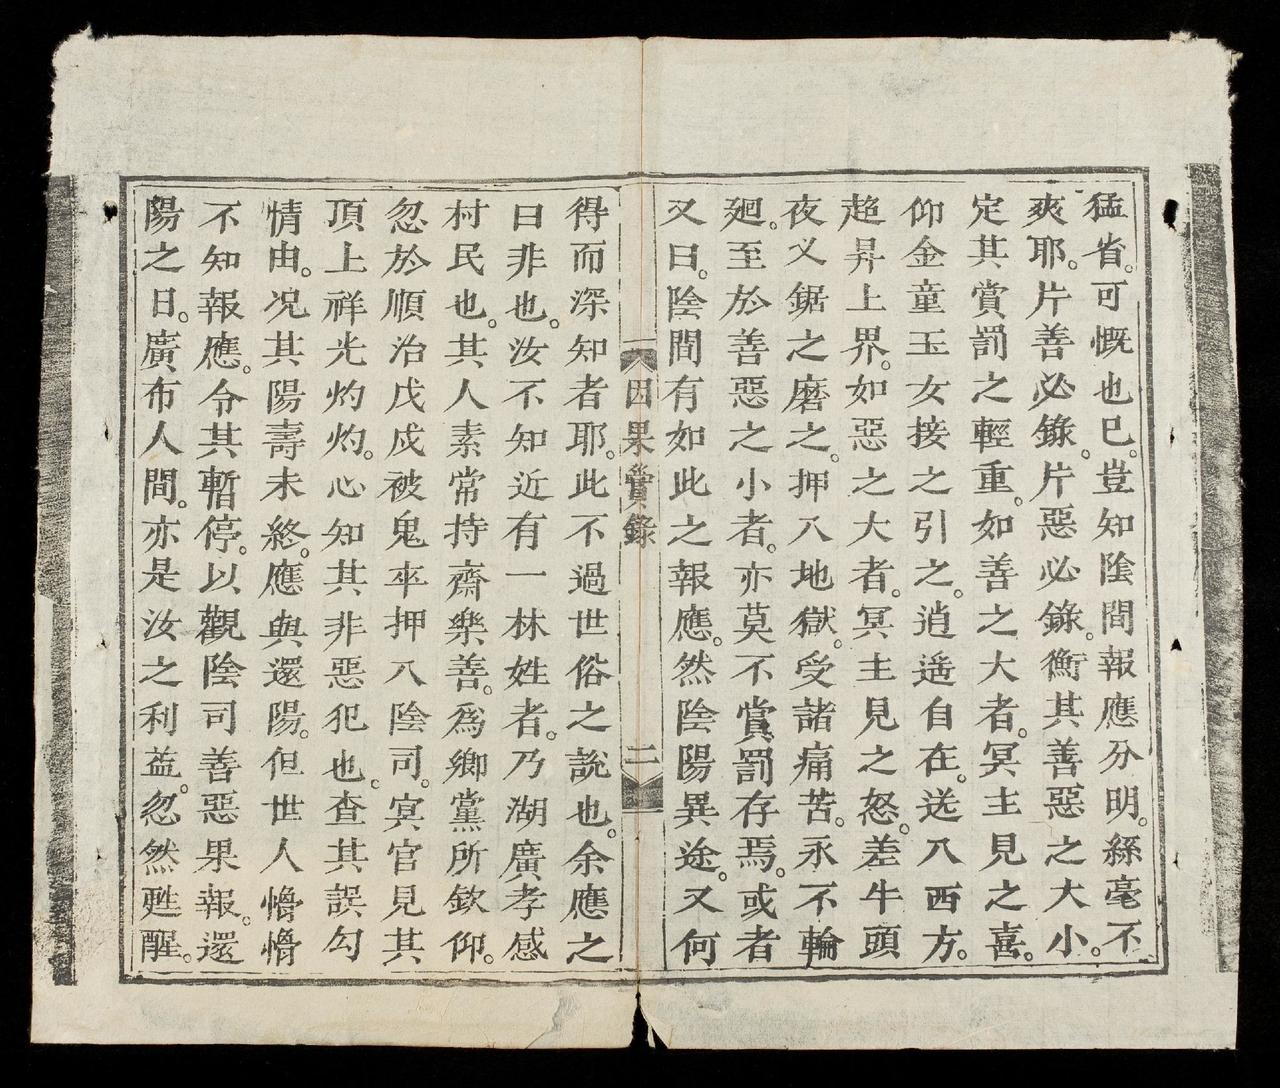 猛省。可慨也已。豈知陰間報應分明。絲毫不
爽耶。片善必錄。片惡必錄。衡其善惡之大小。
定其賞罰之輕重。如善之大者。冥主見之喜。
仰金童玉女接之引之。逍遙自在。送入西方。
超昇上界。如惡之大者。冥主見之怒。差牛頭
夜叉鋸之磨之。押入地獄。受諸痛苦。永不輪
廻。至於善惡之小者。亦莫不賞罰存焉。或者
又曰。陰間有如此之報應。然陰陽異途。又何
因果實錄 二
得而深知者耶。此不過世俗之說也。余應之
曰非也。汝不知近有一林姓者。乃湖廣孝感
村民也。其人素常持齋樂善。爲鄉黨所欽仰。
忽於順治戊戌被鬼卒押入陰司。冥官見其
頂上祥光灼灼。心知其非惡犯也。查其誤勾
情由。況其陽壽未終。應與還陽。但世人懵懵
不知報應。令其暫停。以觀陰司善惡果報。還
陽之日。廣布人間。亦是汝之利益。忽然甦醒。